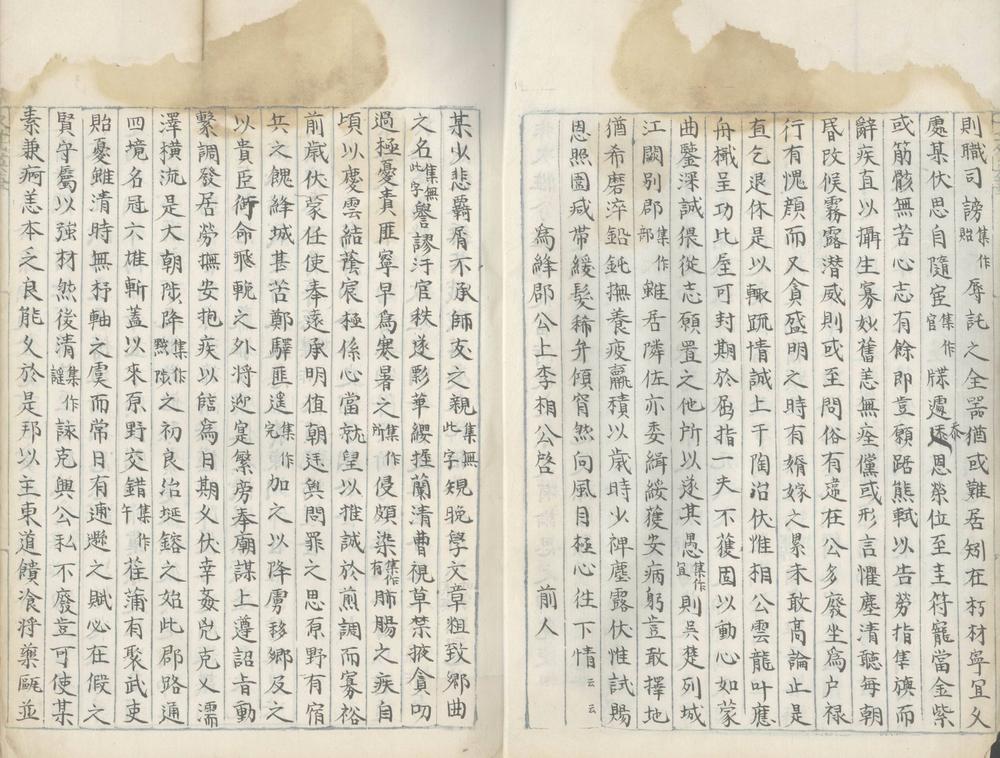 則職司謗集作貽辱託之全器猶或難居矧在朽材寧宜久
處某伏思自隨宦集作官牒遽忝恩榮位至圭符寵當金紫
或筋骸無苦心志有餘即豈願踣熊軾以告勞指隼旟而
辭疾直以攝生寡妙舊恙無痊儻或形言懼塵清聽每朝
昏改候霧露潜威則或至問俗有違在公多廢坐爲户禄
行有愧顔而又貪盛明之時有婚嫁之累未敢高論止是
直乞退休是以輙疏情誠上干陶冶伏惟相公雲龍叶應
舟檝呈功比屋可封期於屈指一夫不獲固以動心如蒙
曲鑒深誠俯從志願置之他所以遂其愚集作宜則吳楚列城
江闗别郡集作部雖居隣佐亦委緝綏獲安病躬豈敢擇地
猶希磨淬鉛鈍撫養疲羸積以歲時少裨塵露伏惟試賜
恩照圍減帶緩髮稀弁傾窅然向風目極心往下情云云
爲絳郡公上李相公啓　前人
某少悲羇屑不承師友之親集無此字規晩學文章粗致鄉曲
之名集無此字譽謬汙官秩遂影華纓握蘭清曹視草禁掖貪叨
過極憂責匪寧早爲寒暑之集作所侵頗染集作有肺腸之疾自
頃以慶雲結蔭宸極係心當就望以推誠於煎調而寡裕
前歲伏蒙任使奉遠承明值朝廷輿問罪之思原野有宿
兵之餽絳城甚苦鄭驛匪遥集作完加之以降虜移鄉及之
以貴臣銜命飛輓之外將迎寔繁旁奉廟謀上遵詔旨動
繫調發居勞撫安抱疾以臨爲日期久伏幸姦兇克乂濡
澤横流是大朝陟降集作黙陟之初良治埏鎔之始此郡路通
四境名冠六雄斬蓋以來原野交錯集作午萑蒲有聚武吏
貽憂雖清時無杼軸之虞而常日有逋遯之賦必在假之
賢守屬以强材然後清集作謠詠克興公私不廢豈可使某
素兼痾恙本之良能久於是邦以主東道饋飡將藥甌並